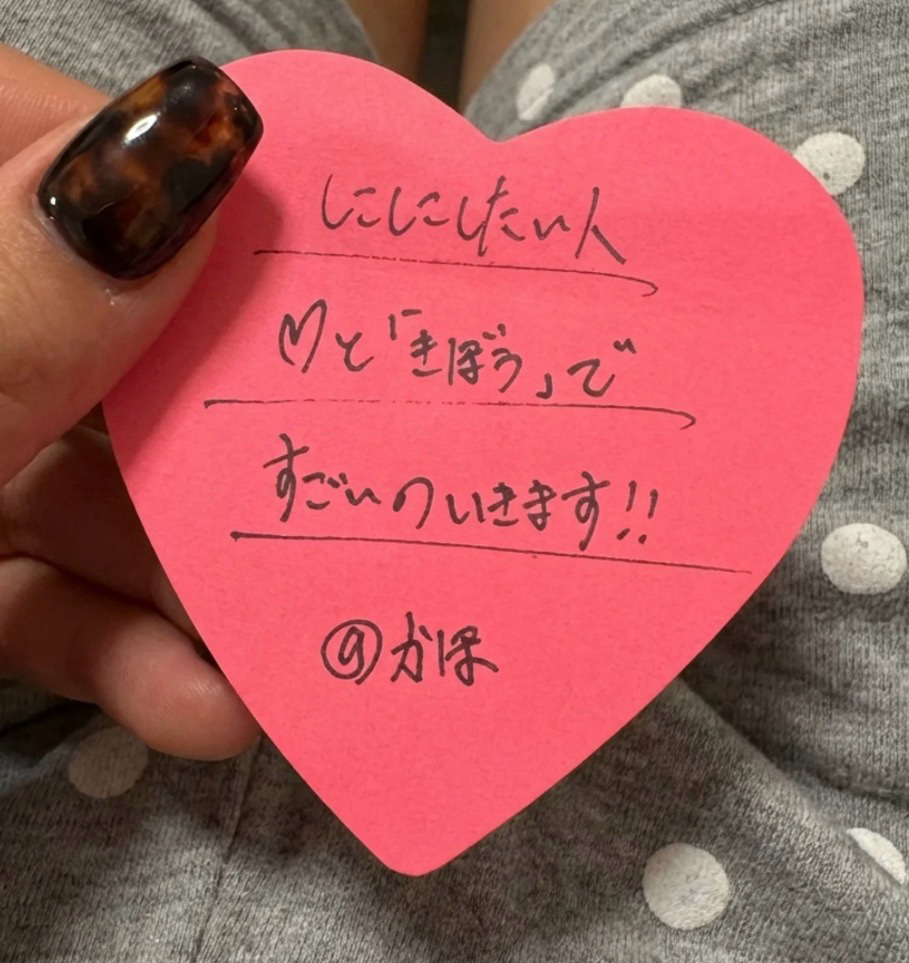 にこにこしたい人
♡と「きぼう」で
すごいのいきます!!
@かほ